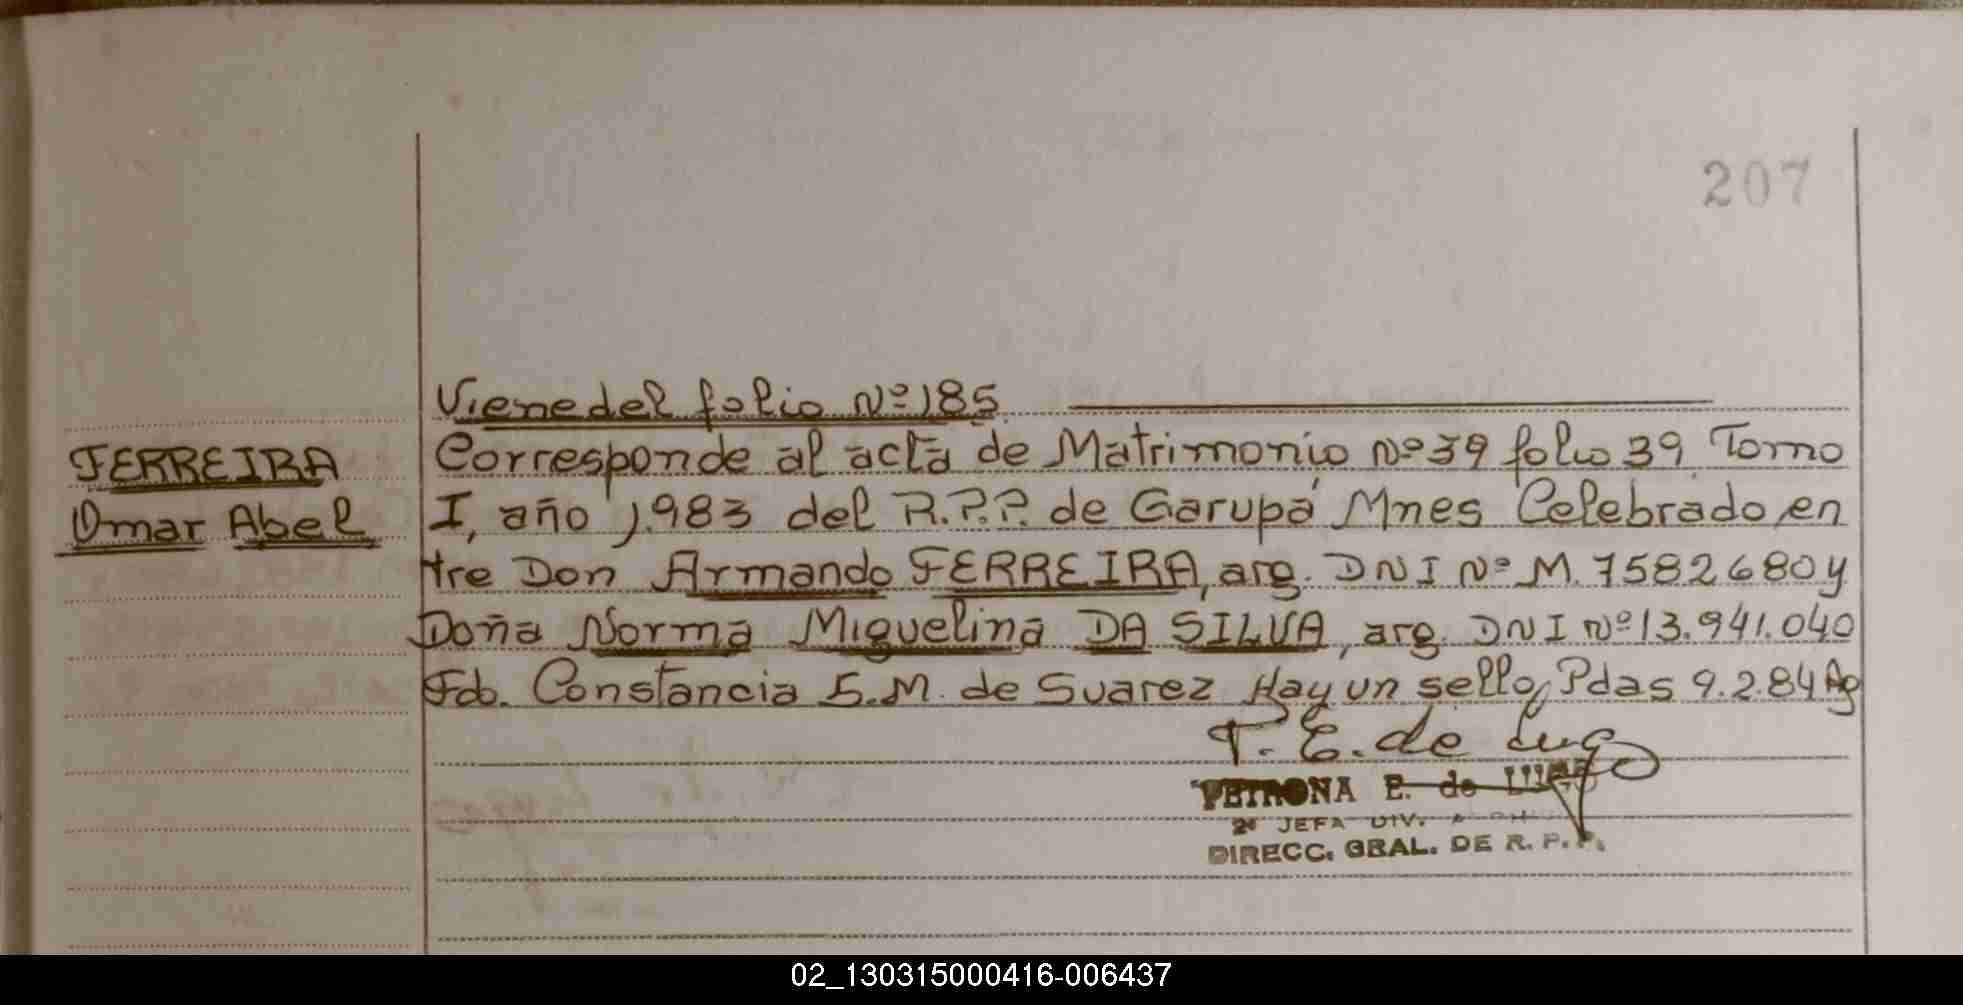 207
Viene del folio Nº 185
FERREIRA
Omar Abel
Corresponde al acta de Matrimonio Nº 39 folio 39 Tomo
I, año 1.983 del R.P.P. de Garupá Mnes Celebrado en
tre Don Armando FERREIRA, arg. DNI Nº M. 7582680 y
Doña Norma Miguelina DA SILVA, arg. DNI Nº 13.941.040
Fdo. Constancia S.M. de Suarez Hay un sello, Pdas 9.2.84 Ag
P. E. de Lugo
PETRONA E. de LUGO
2º JEFA DIV.
DIRECC. GRAL. DE R. P. P.
02_130315000416-006437